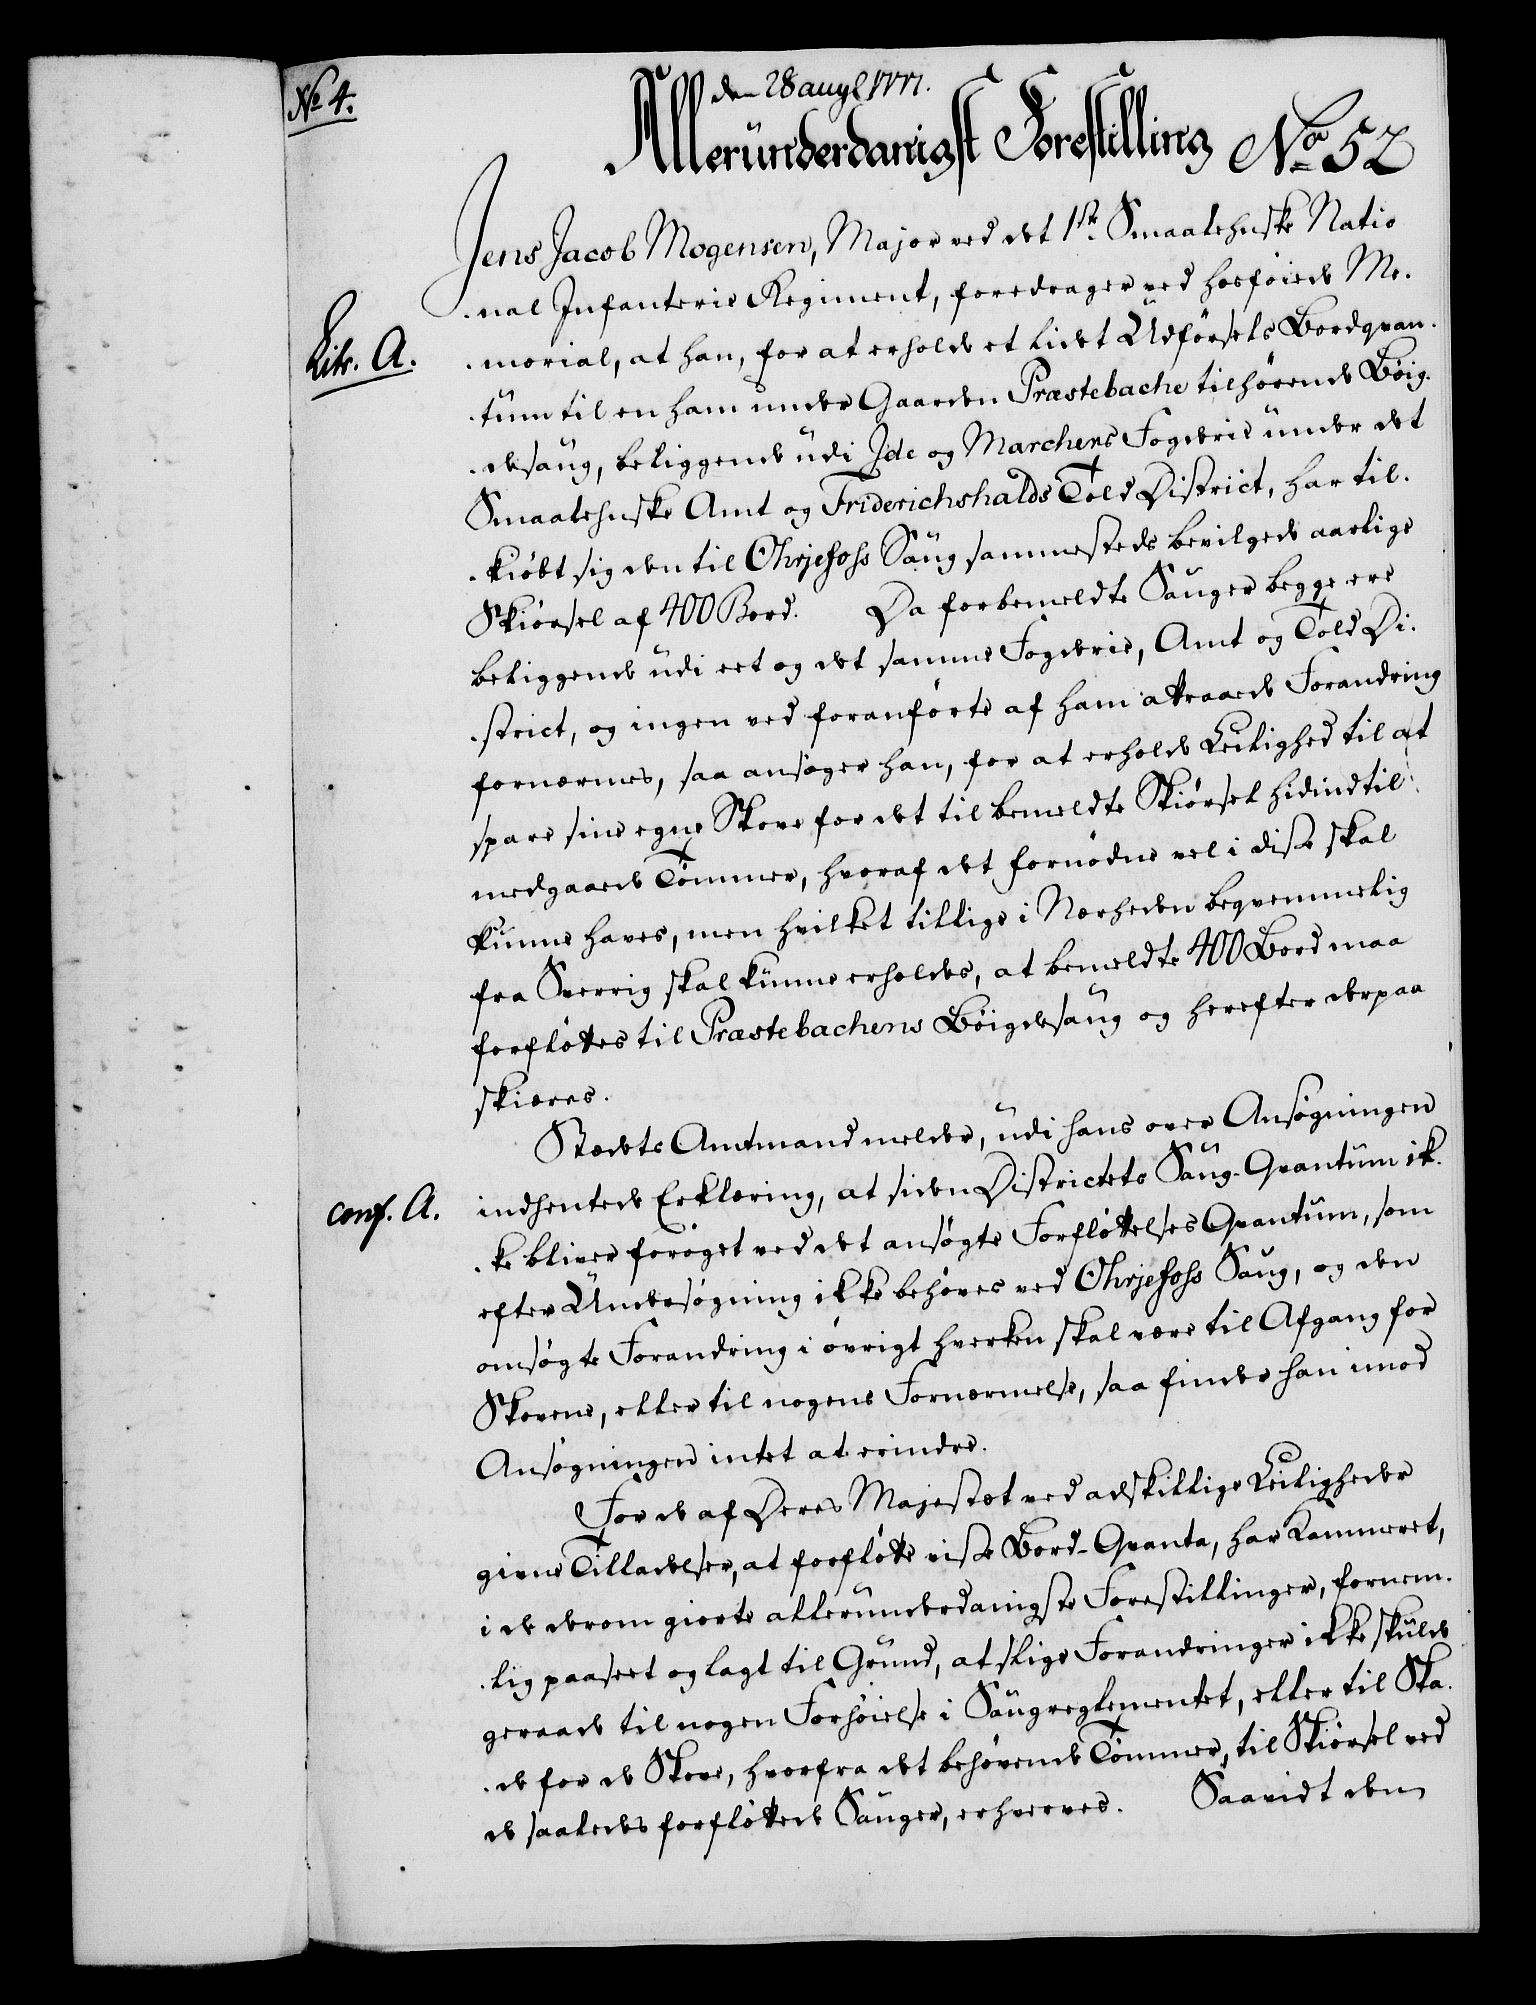 No 4.
den 28 augl 1777.
Alleründerdanigst Forestilling No 52
Jens Jacob Mogensen, Major ved det 1ste Smaalehnske Natio
nal Infanterie Regiment, foredrager ved hosföiede Me-
Litr. A.
morial, at han, for at erholde et lidet Udförsels Bordqvan-
tum til en ham under Gaarden Præstebache tilhörende Böig-
desaug, beliggende udi Ide og Marchens Fogderie under det
Smaalehnske Amt og Friderichshalds Told District, har til-
kiöbt sig den til Ohrjefoss Saug sammesteds bevilgede aarlige
Skiörsel af 400 Bord. Da forbemeldte Sauger begge ere
beliggende udi eet og det samme Fogderie, Amt og Told Di-
strict, og ingen ved foranförte af ham attraaede Forandring
fornærmes, saa ansöger han, for at erholde Leilighed til at
spare sine egne Skove for det til bemeldte Skiörsel hidindtil
medgaaede Tömmer, hvoraf det fornödne vel i disse skal
kunne haves, men hvilket tillige i Nærheden beqvemmelig
fra Sverrig skal kunne erholdes, at bemeldte 400 Bord maa
forflöttes til Præstebachens Böigdesaug og herefter derpaa
skiæres.
Stædets Amtmand melder, udi hans over Ansögningen
conf. A.
indhentede Erklæring, at siden Districtets Saug-Qvantum ik-
ke bliver foröget ved det ansögte Forflöttelses Qvantum, som
efter Undersögning ikke behöves ved Ohrjefoss Saug, og den
omsögte Forandring i övrigt hverken skal være til Afgang for
Skovene, eller til nogens Fornærmelse, saa finder han imod
Ansögningen intet at erindre.
For de af Deres Majestæt ved adskillige Leiligheder
givne Tilladelser, at forflötte visse Bord-Qvanta, har Kammeret,
i de derom giorte allerunderdanigste Forestillinger, fornem-
lig paaseet og lagt til Grund, at slige Forandringer ikke skulde
geraade til nogen Forhöielse i Saugreglementet, eller til Ska-
de for de Skove, hvorfra det behövende Tömmer, til Skiörsel ved
de saaledes forflöttede Sauger, erhverves. Saavidt den